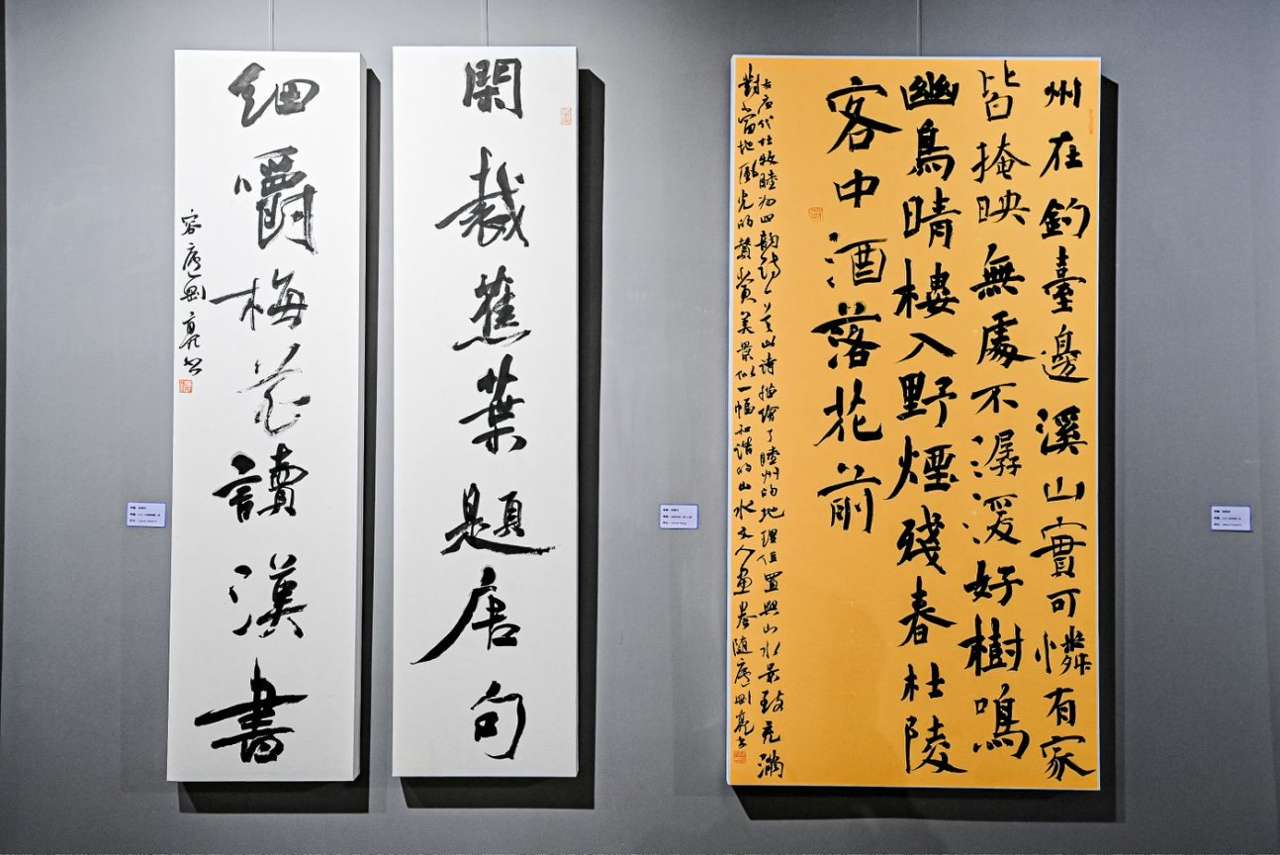 閑裁蕉葉題唐句
細嚼梅花讀漢書
州在釣臺邊溪山實可憐有家
皆掩映無處不潺湲好樹鳴
幽鳥晴樓入野煙殘春杜陵
客中酒落花前
唐代杜牧睦州四韻詩描繪了睦州的地理位置與山水景致充滿
對當地風光的贊賞美景似一幅和諧的山水文人畫卷